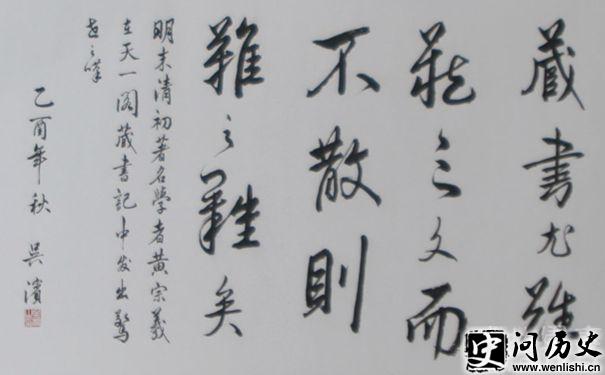 藏書尤難
藏之久而
不散則
難之難矣
明末清初著名學者黃宗羲
在天一阁藏書記中发出驚
世之嘆
乙酉年秋 吳濱
问历史
www.wenlishi.cn